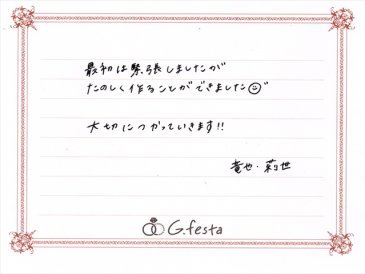 最初は緊張しましたが
たのしく作ることができました☺
大切につかっていきます!!
竜也・莉世
G.festa